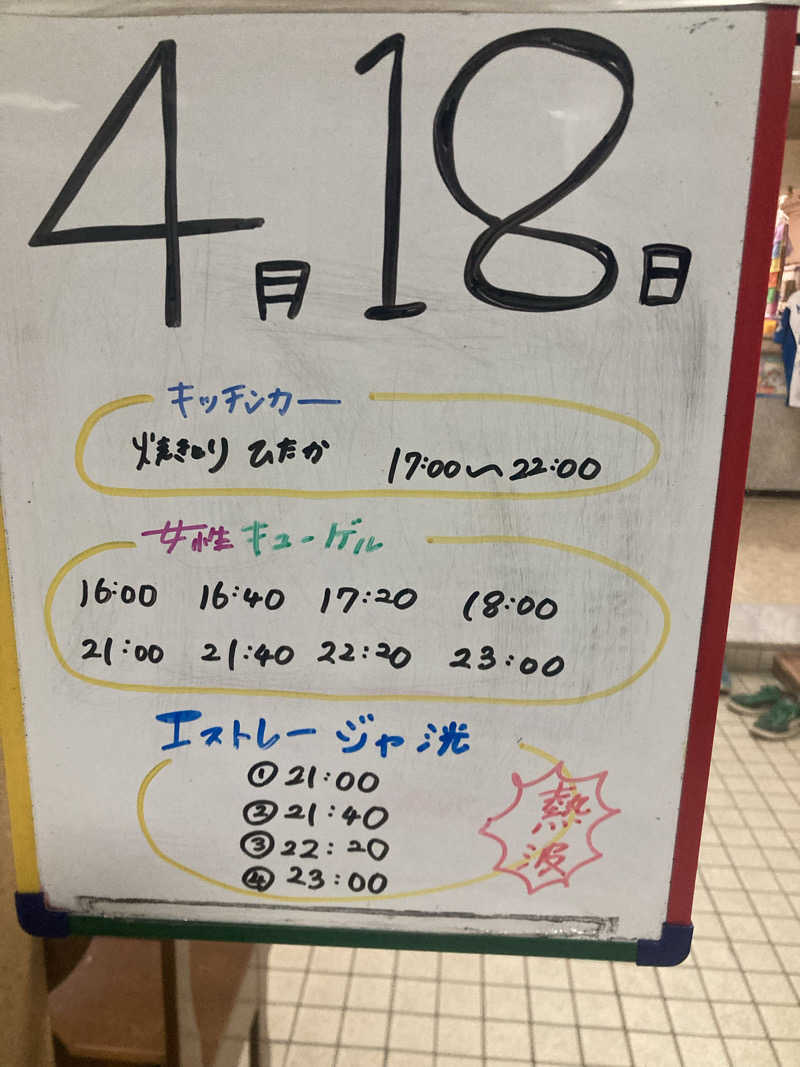 4月18日
キッチンカー
焼きとり ひだか 17:00〜22:00
女性キューゲル
16:00 16:40 17:20 18:00
21:00 21:40 22:20 23:00
エストレージャ 洸
① 21:00
② 21:40
③ 22:20
④ 23:00
熱波